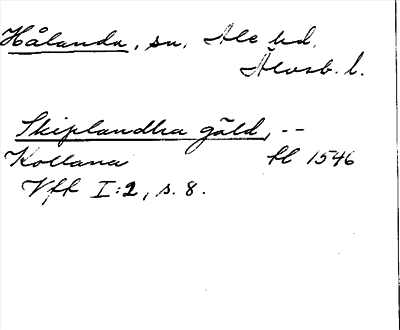 Hålanda, sn, Ale hd.
Älvsb. l.
Skiplandha gäld, --
Kollana fl 1546
Vfl I:2, s. 8.